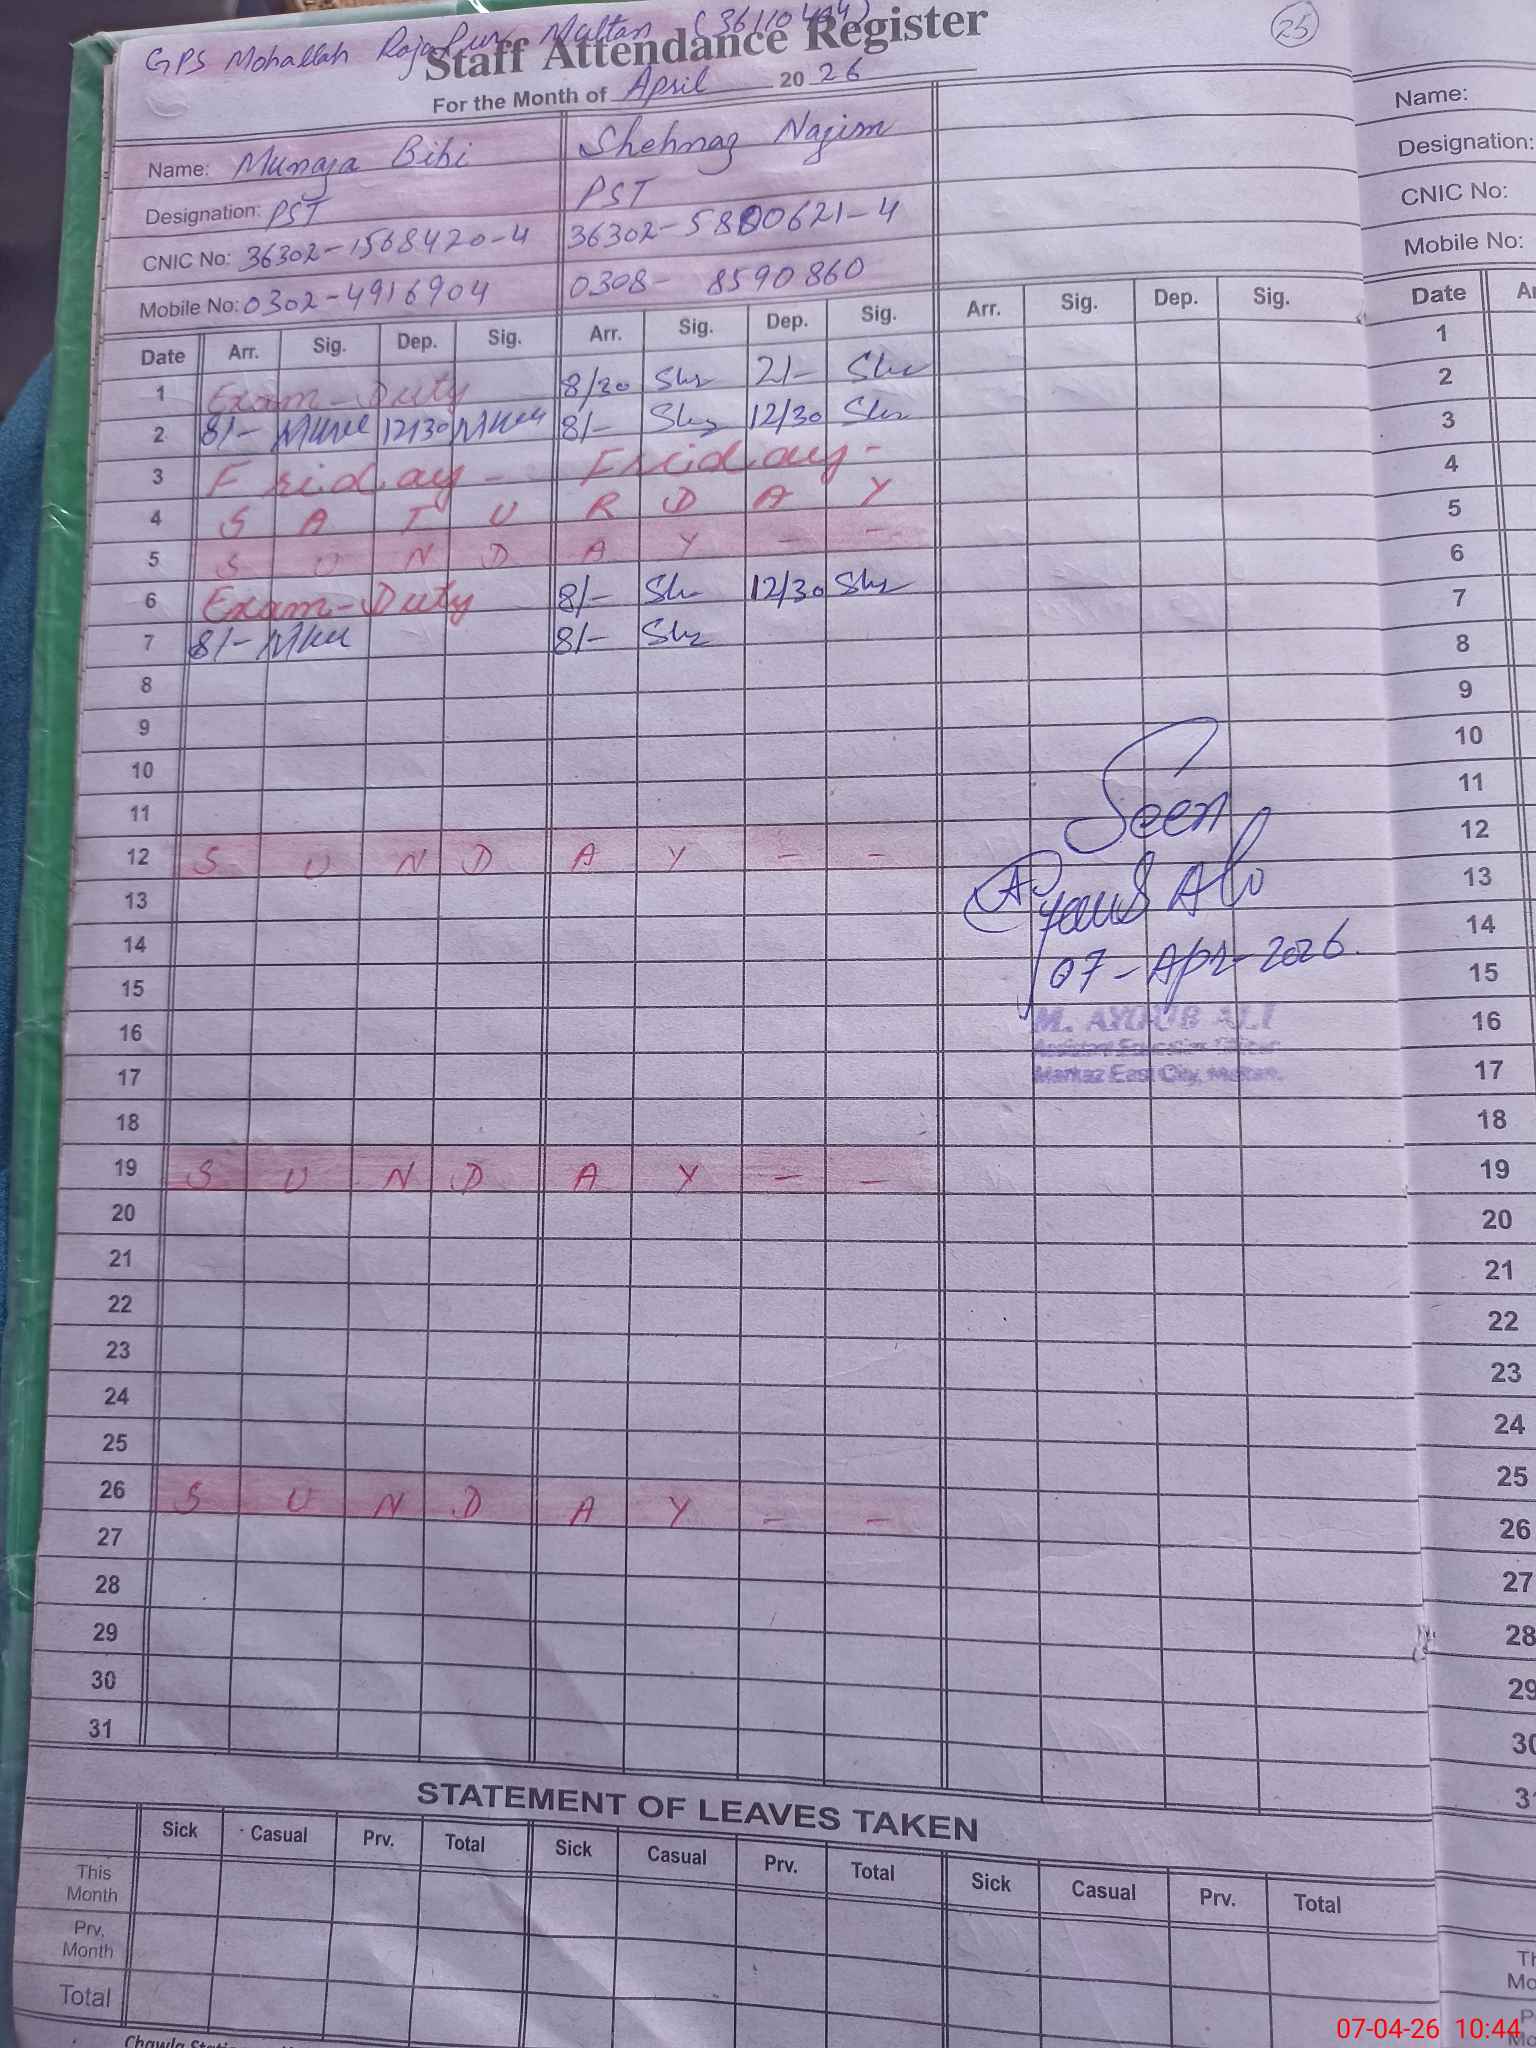 GPS Mohallah Raja Pur Multan
25
Staff Attendance Register
For the Month of April 20 26
Name: Munaza Bibi Shehnaz Nazim
Designation: PST PST
CNIC No: 36302-1568420-4 36302-5800621-4
Mobile No: 0302-4916904 0308- 8590860
Date Arr. Sig. Dep. Sig. Arr. Sig. Dep. Sig. Arr. Sig. Dep. Sig.
1 Exam-Duty 8/30 2/-
2 8/- 12/30 8/- 12/30
3 Friday - Friday -
4 S A T U R D A Y
5 S U N D A Y - -
6 Exam-Duty 8/- 12/30
7 8/- 8/-
8
9
10
11
12 S U N D A Y - -
13
14
15
16
17
18
19 S U N D A Y - -
20
21
22
23
24
25
26 S U N D A Y - -
27
28
29
30
31
Seen
Ayoub Ali
07-Apr-2026
M. AYOUB ALI
Assistant Education Officer
Markaz East City, Multan.
STATEMENT OF LEAVES TAKEN
Sick Casual Prv. Total Sick Casual Prv. Total Sick Casual Prv. Total
This Month
Prv. Month
Total
Name:
Designation:
CNIC No:
Mobile No:
Date
1
2
3
4
5
6
7
8
9
10
11
12
13
14
15
16
17
18
19
20
21
22
23
24
25
26
27
28
29
30
31
07-04-26 10:44